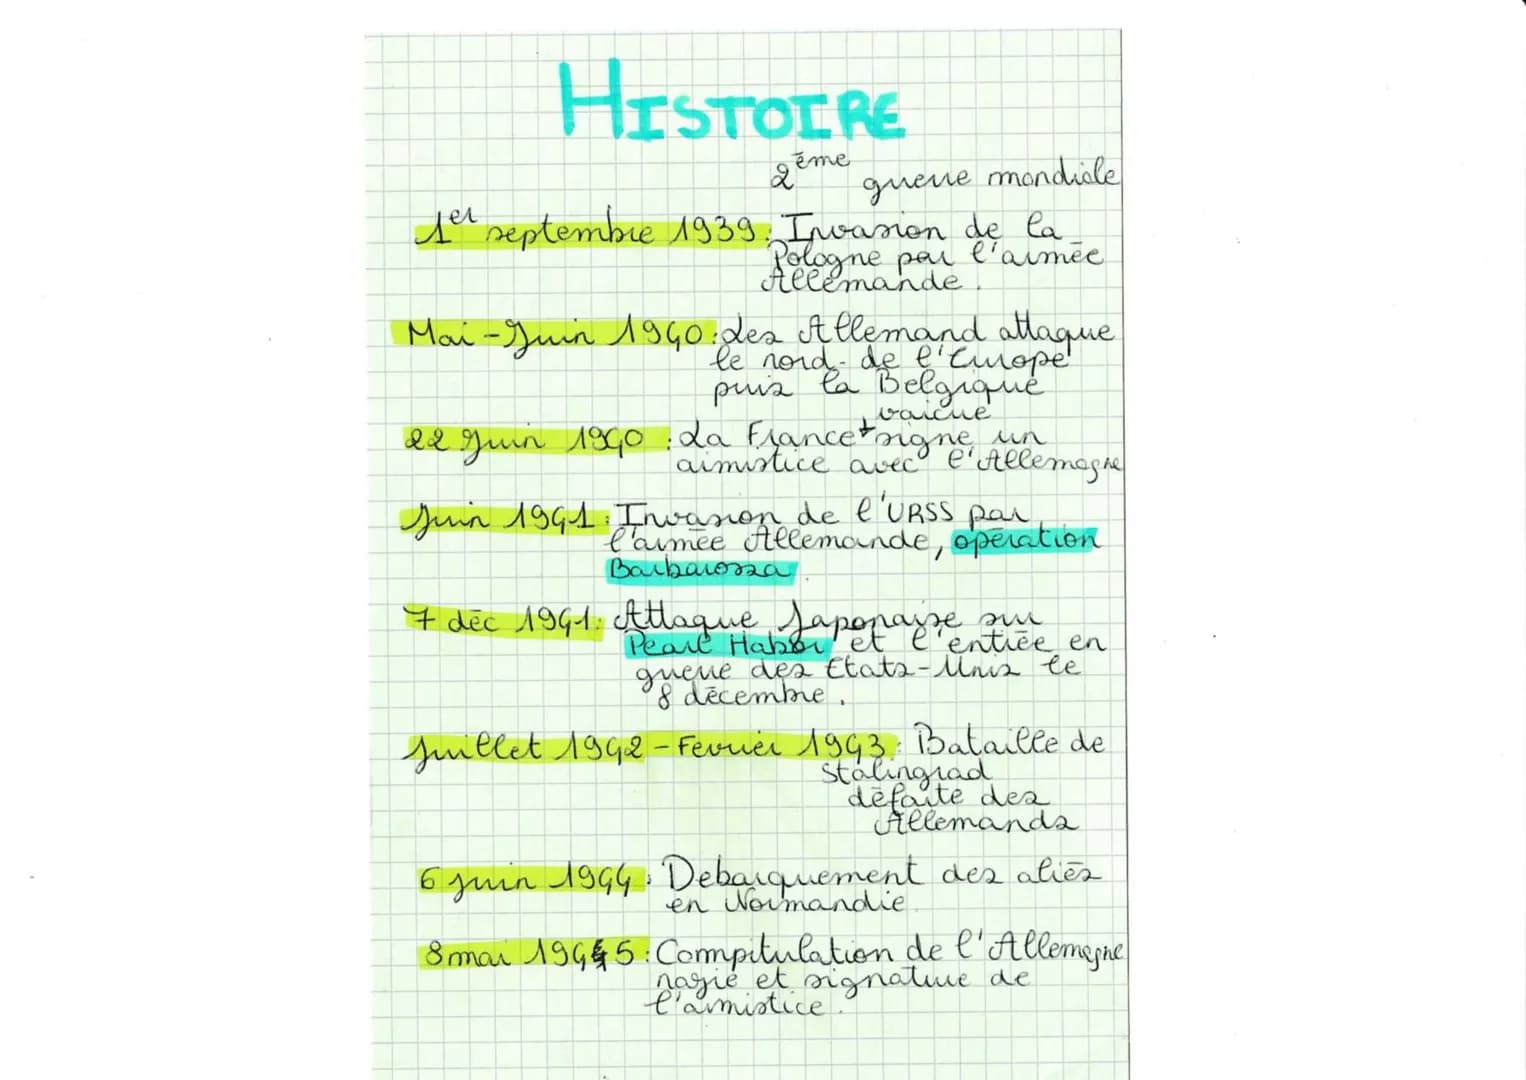 HISTOIRE
2ème guerre mondiale
1er septembre 1939: Invasion de la
Pologne par l'armée
Allemande.
Mai-Juin 1940: Les Allemand attaque
le nord de l'Europe
puis la Belgique
vaicue
22 Juin 1940: La France + signe un
armistice avec l'Allemagne
Juin 1941: Invasion de l'URSS par
l'armée Allemande, opération
Barbarossa
7 déc 1941: Attaque Japonaise sur
Pearl Habor et l'entrée en
guerre des Etats-Unis le
8 décembre.
Juillet 1942 - Fevrier 1943: Bataille de
Stalingrad
défaite des
Allemands
6 juin 1944: Debarquement des aliés
en Normandie
8 mai 1945: Compitulation de l'Allemagne
nazie et signature de
l'armistice.